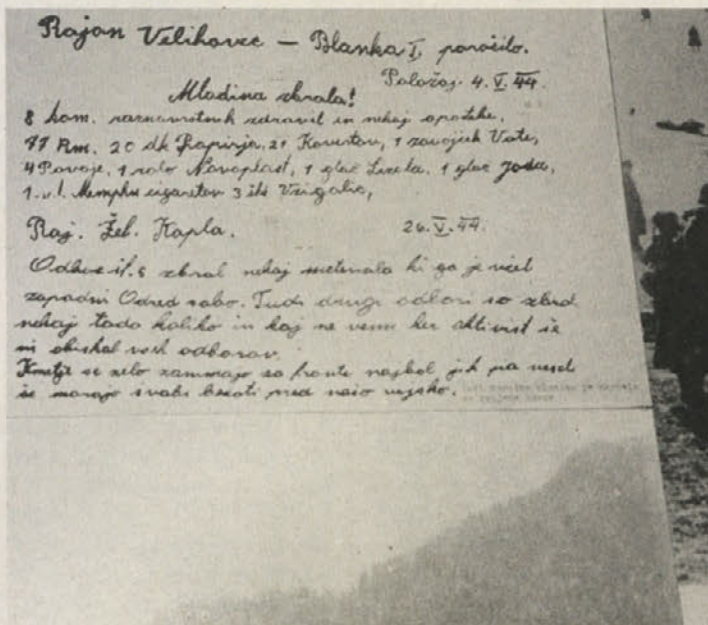 Rajon Velikovec — Blanka I. poročilo.
Položaj. 4. V. 44.
Mladina zbrala!
8 kom. raznovrstnih zdravil in nekaj apoteke,
Rm. 20 dk Papirja, 21 Kovertov, 1 zavojček Vate,
4 Povoje, 1 rolo Novoplast, 1 glaž Lizola, 1 glaž Joda,
1 Memphis cigaretov 3 Vžigalic,
Raj. Žel. Kapla. 26. V. 44.
Odbor št. 5 zbral nekaj materiala ki ga je vzel
zapadni Odred sabo. Tudi drugi odbori so zbrali
nekaj toda koliko in kaj ne vemo ker aktivist še
ni obiskal vseh odborov.
Kmetje se zelo zanimajo za fronte najbol jih pa veseli
še morajo švabi bežati pred našo vojsko.